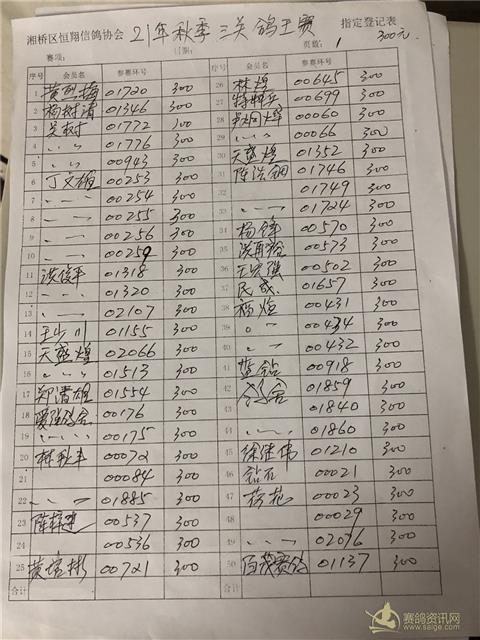 湘桥区恒翔信鸽协会 21年秋季三关鸽王赛 指定登记表
赛项: 日期: 页数: 1 300元
序号 会员名 参赛环号
1 01720 300
2 杨树清 01346 300
3 吴树 01772 300
4 〃 〃 01776 300
5 〃 〃 00943 300
6 丁文雄 00253 300
7 〃 — 00254 300
8 〃 — 00255 300
9 〃 — 00256 300
10 〃 — 00259 300
11 洪俊平 01318 300
12 〃 — 01320 300
13 〃 — 02107 300
14 王少川 01155 300
15 天盛煌 02066 300
16 〃 〃 01513 300
17 郑清雄 01554 300
18 00176 300
19 00175 300
20 林秋丰 00072 300
21 00084 300
22 〃 — 01885 300
23 00537 300
24 00536 300
25 黄培彬 00721 300
合计
序号 会员名 参赛环号
26 林煌 00645 300
27 00699 300
28 00060 300
29 〃 — 00066 300
30 天盛煌 01352 300
31 01746 300
32 01749 300
33 〃 — 01724 300
34 杨锋 00570 300
35 00573 300
36 00502 300
37 民盛 01657 300
38 杨煌 00431 300
39 〃 — 00434 300
40 〃 — 00432 300
41 蓝钻 00918 300
42 01859 300
43 01840 300
44 01860 300
45 徐继伟 01210 300
46 钻石 00021 300
47 荷花 00023 300
48 00029 300
49 〃 — 02076 300
50 01137 300
合计
赛鸽资讯网
www.saige.com